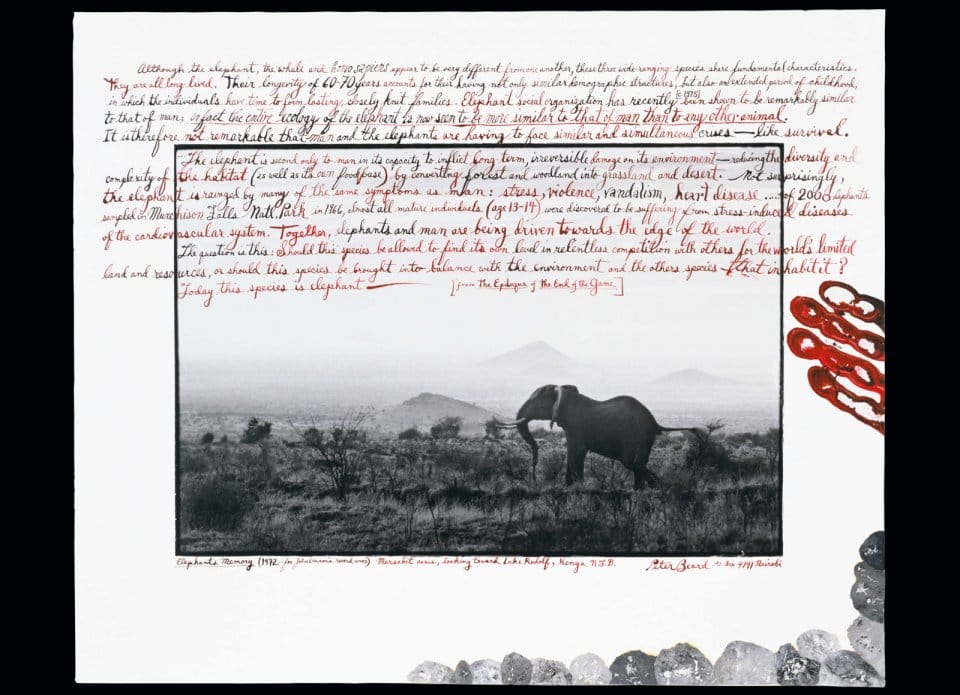 Although the elephant, the whale and homo sapiens appear to be very different from one another, these three wide-ranging species share fundamental characteristics.
They are all long-lived. Their longevity of 60-70 years accounts for their having not only similar demographic structures, but also an extended period of childhood,
in which the individuals have time to form lasting, closely knit families. Elephant social organization has recently [c.1975] been shown to be remarkably similar
to that of man; in fact the entire ecology of the elephant is now seen to be more similar to that of man than to any other animal.
It is therefore not remarkable that man and the elephants are having to face similar and simultaneous crises — like survival.
...The elephant is second only to man in its capacity to inflict long-term, irreversible damage on its environment — reducing the diversity and
complexity of the habitat (as well as its own food base) by converting forest and woodland into grassland and desert. Not surprisingly,
the elephant is ravaged by many of the same symptoms as man: stress, violence, vandalism, heart disease ..... of 2000 elephants
sampled in Murchison Falls Natl. Park in 1966, almost all mature individuals (age 13-14) were discovered to be suffering from stress-induced diseases
of the cardiovascular system. Together, elephants and man are being driven towards the edge of the world.
The question is this: Should this species be allowed to find its own level in relentless competition with others for the world's limited
land and resources, or should this species be brought into balance with the environment and the others species that inhabit it?
Today this species is elephant —
[from The Epilogue of The End of the Game]
Elephants Memory (1972 for) Marsabit looking toward Lake Rudolf, Kenya N.F.D. Peter Beard Box 4191 Nairobi